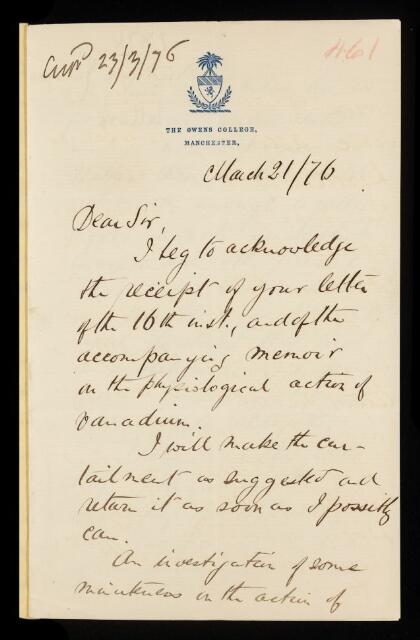 23/3/76
461
THE OWENS COLLEGE,
MANCHESTER,
March 21/76
Dear Sir,
I beg to acknowledge
the receipt of your letter
of the 16th inst., and of the
accompanying memoir
on the physiological action of
vanadium.
I will make the cur-
tailment as suggested and
return it as soon as I possibly
can.
An investigation of some
in the action of